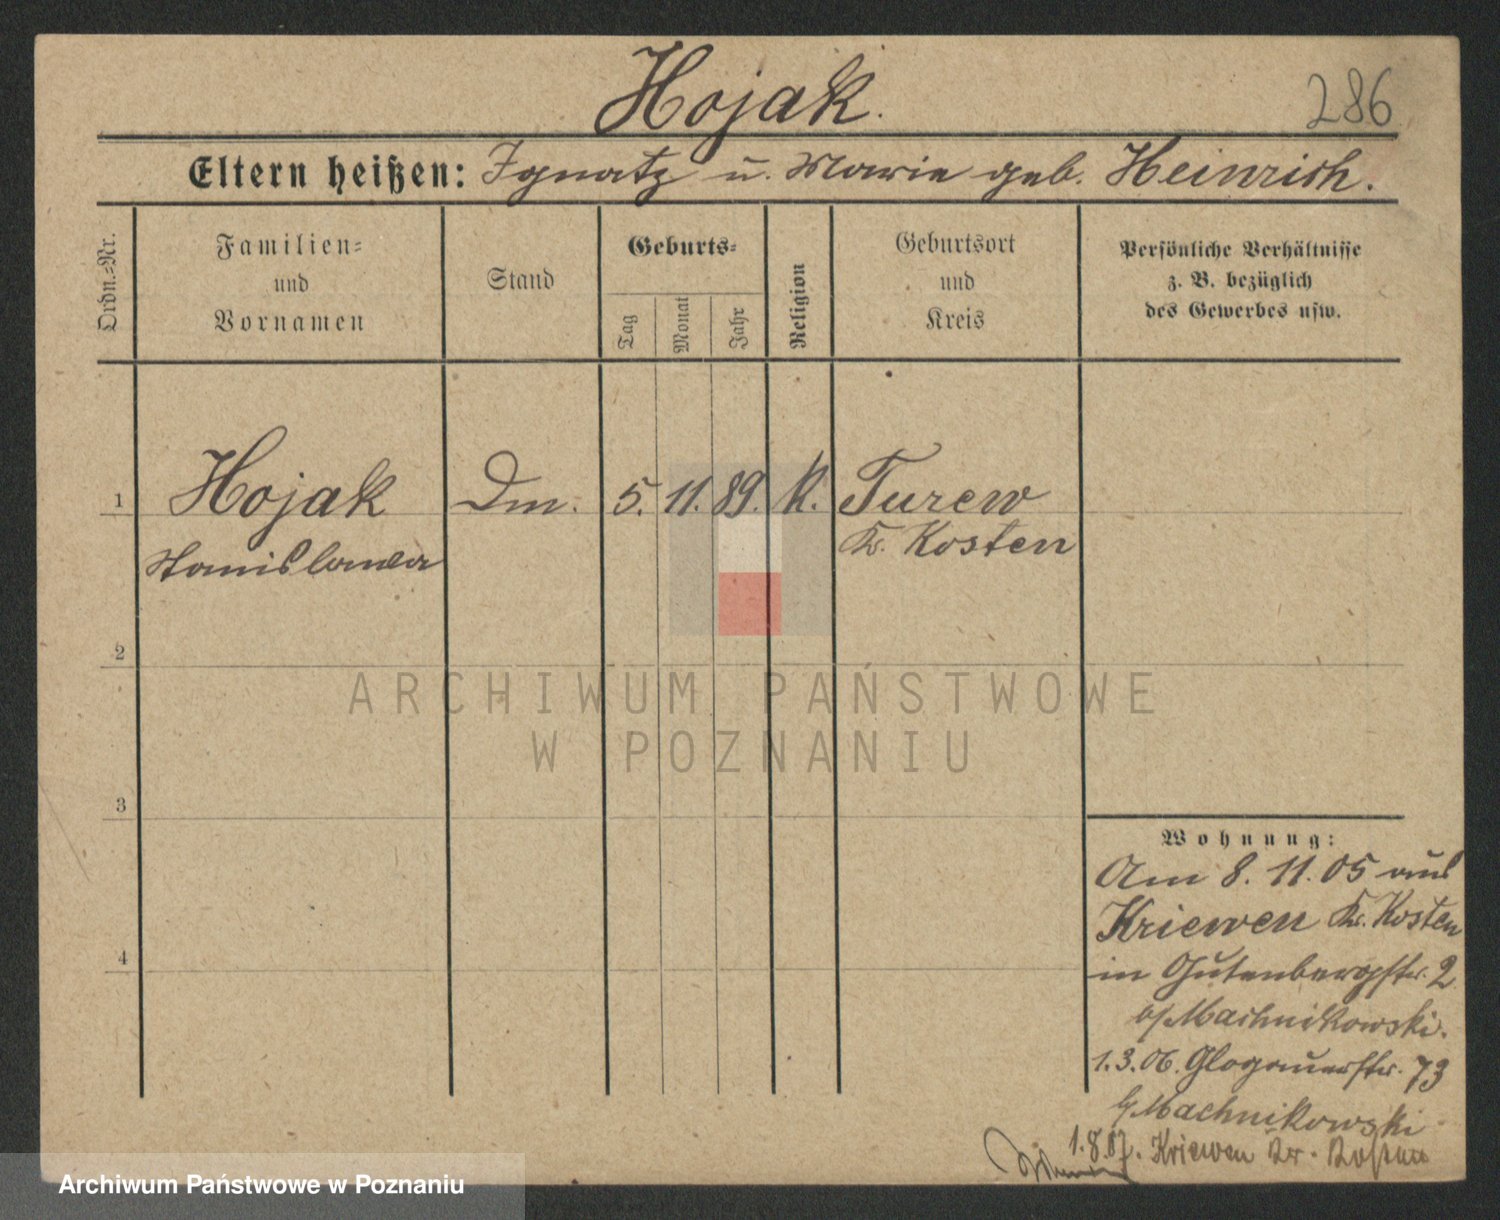 Hojak.
286
Eltern heißen: Ignatz u. Marie geb. Heinrich.
Ordn.=Nr.
Familien=
und
Vornamen
Stand
Geburts=
Tag
Monat
Jahr
Religion
Geburtsort
und
Kreis
Persönliche Verhältnisse
z. B. bezüglich
des Gewerbes usw.
1 Hojak Dm. 5. 11. 89. K. Turew
Stanislawa Kr. Kosten
2
ARCHIWUM PAŃSTWOWE
W POZNANIU
3
Wohnung:
Am 8. 11. 05 aus
Kriewen Kr. Kosten
4
in Gutenbergstr. 2
b/Machnikowski.
1.3.06. Glogauerstr. 73
b/Machnikowski
1.8.07. Kriewen Kr. Kosten
Archiwum Państwowe w Poznaniu